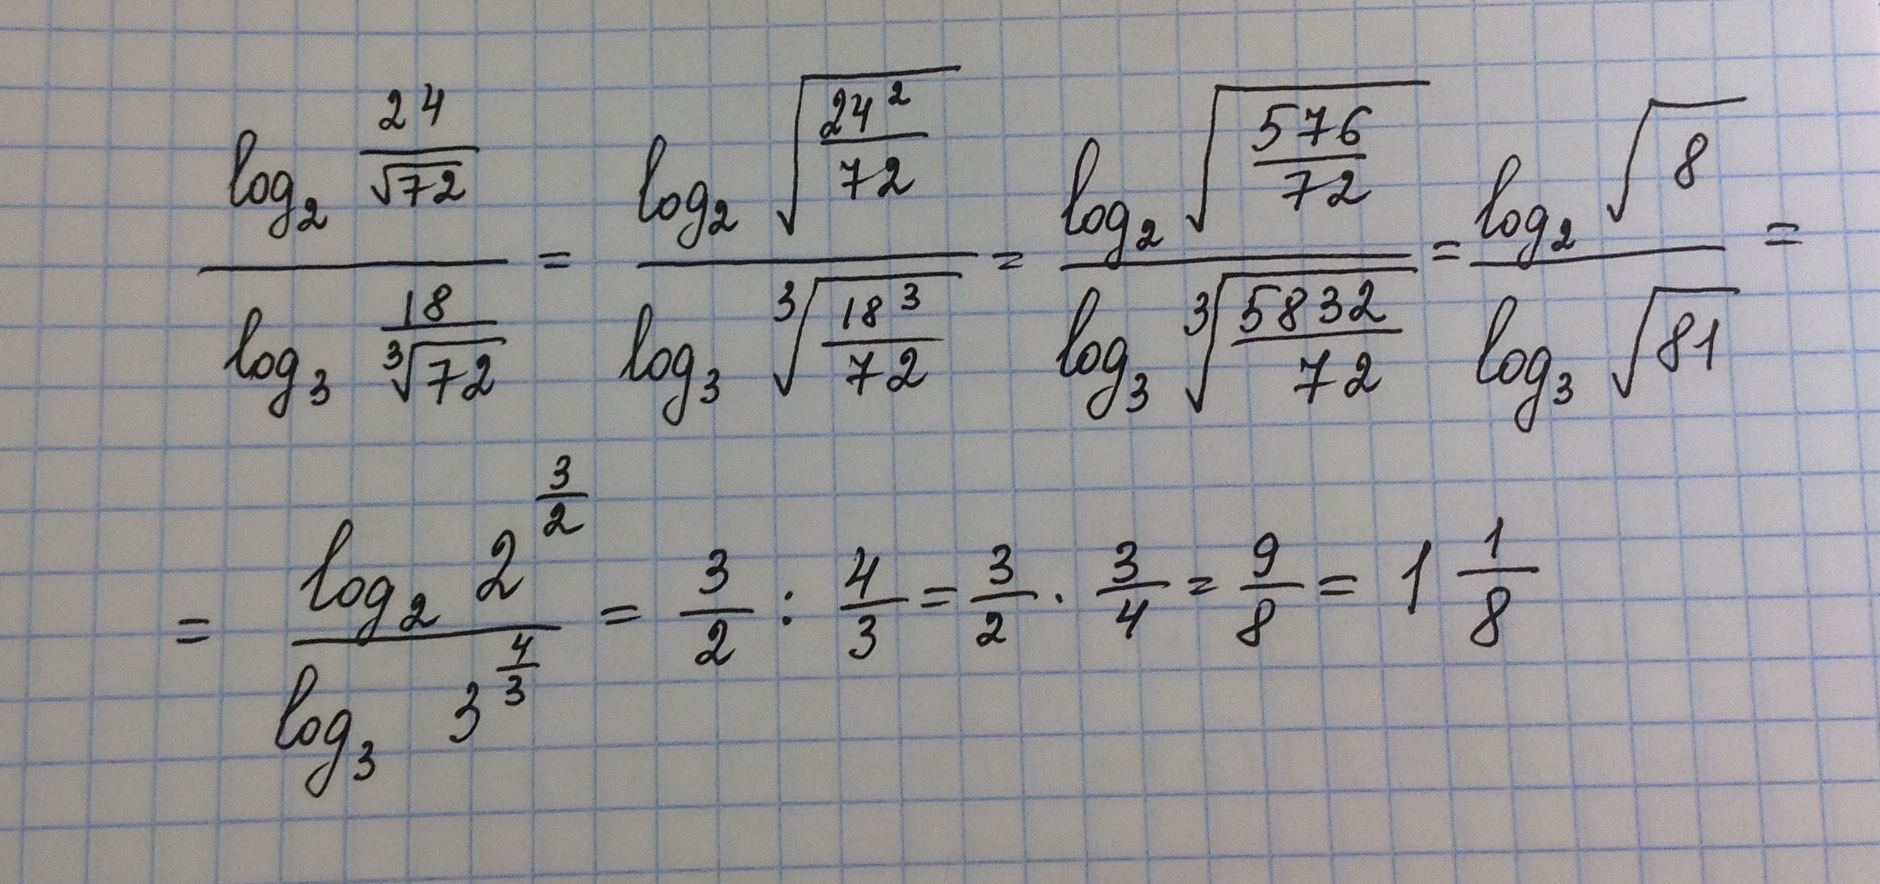 log₂ 24/√72 / log₃ 18/³√72 = log₂ √(24²/72) / log₃ ³√(18³/72) = log₂ √(576/72) / log₃ ³√(5832/72) = log₂ √8 / log₃ √81 =
= log₂ 2^(3/2) / log₃ 3^(4/3) = 3/2 : 4/3 = 3/2 · 3/4 = 9/8 = 1 1/8